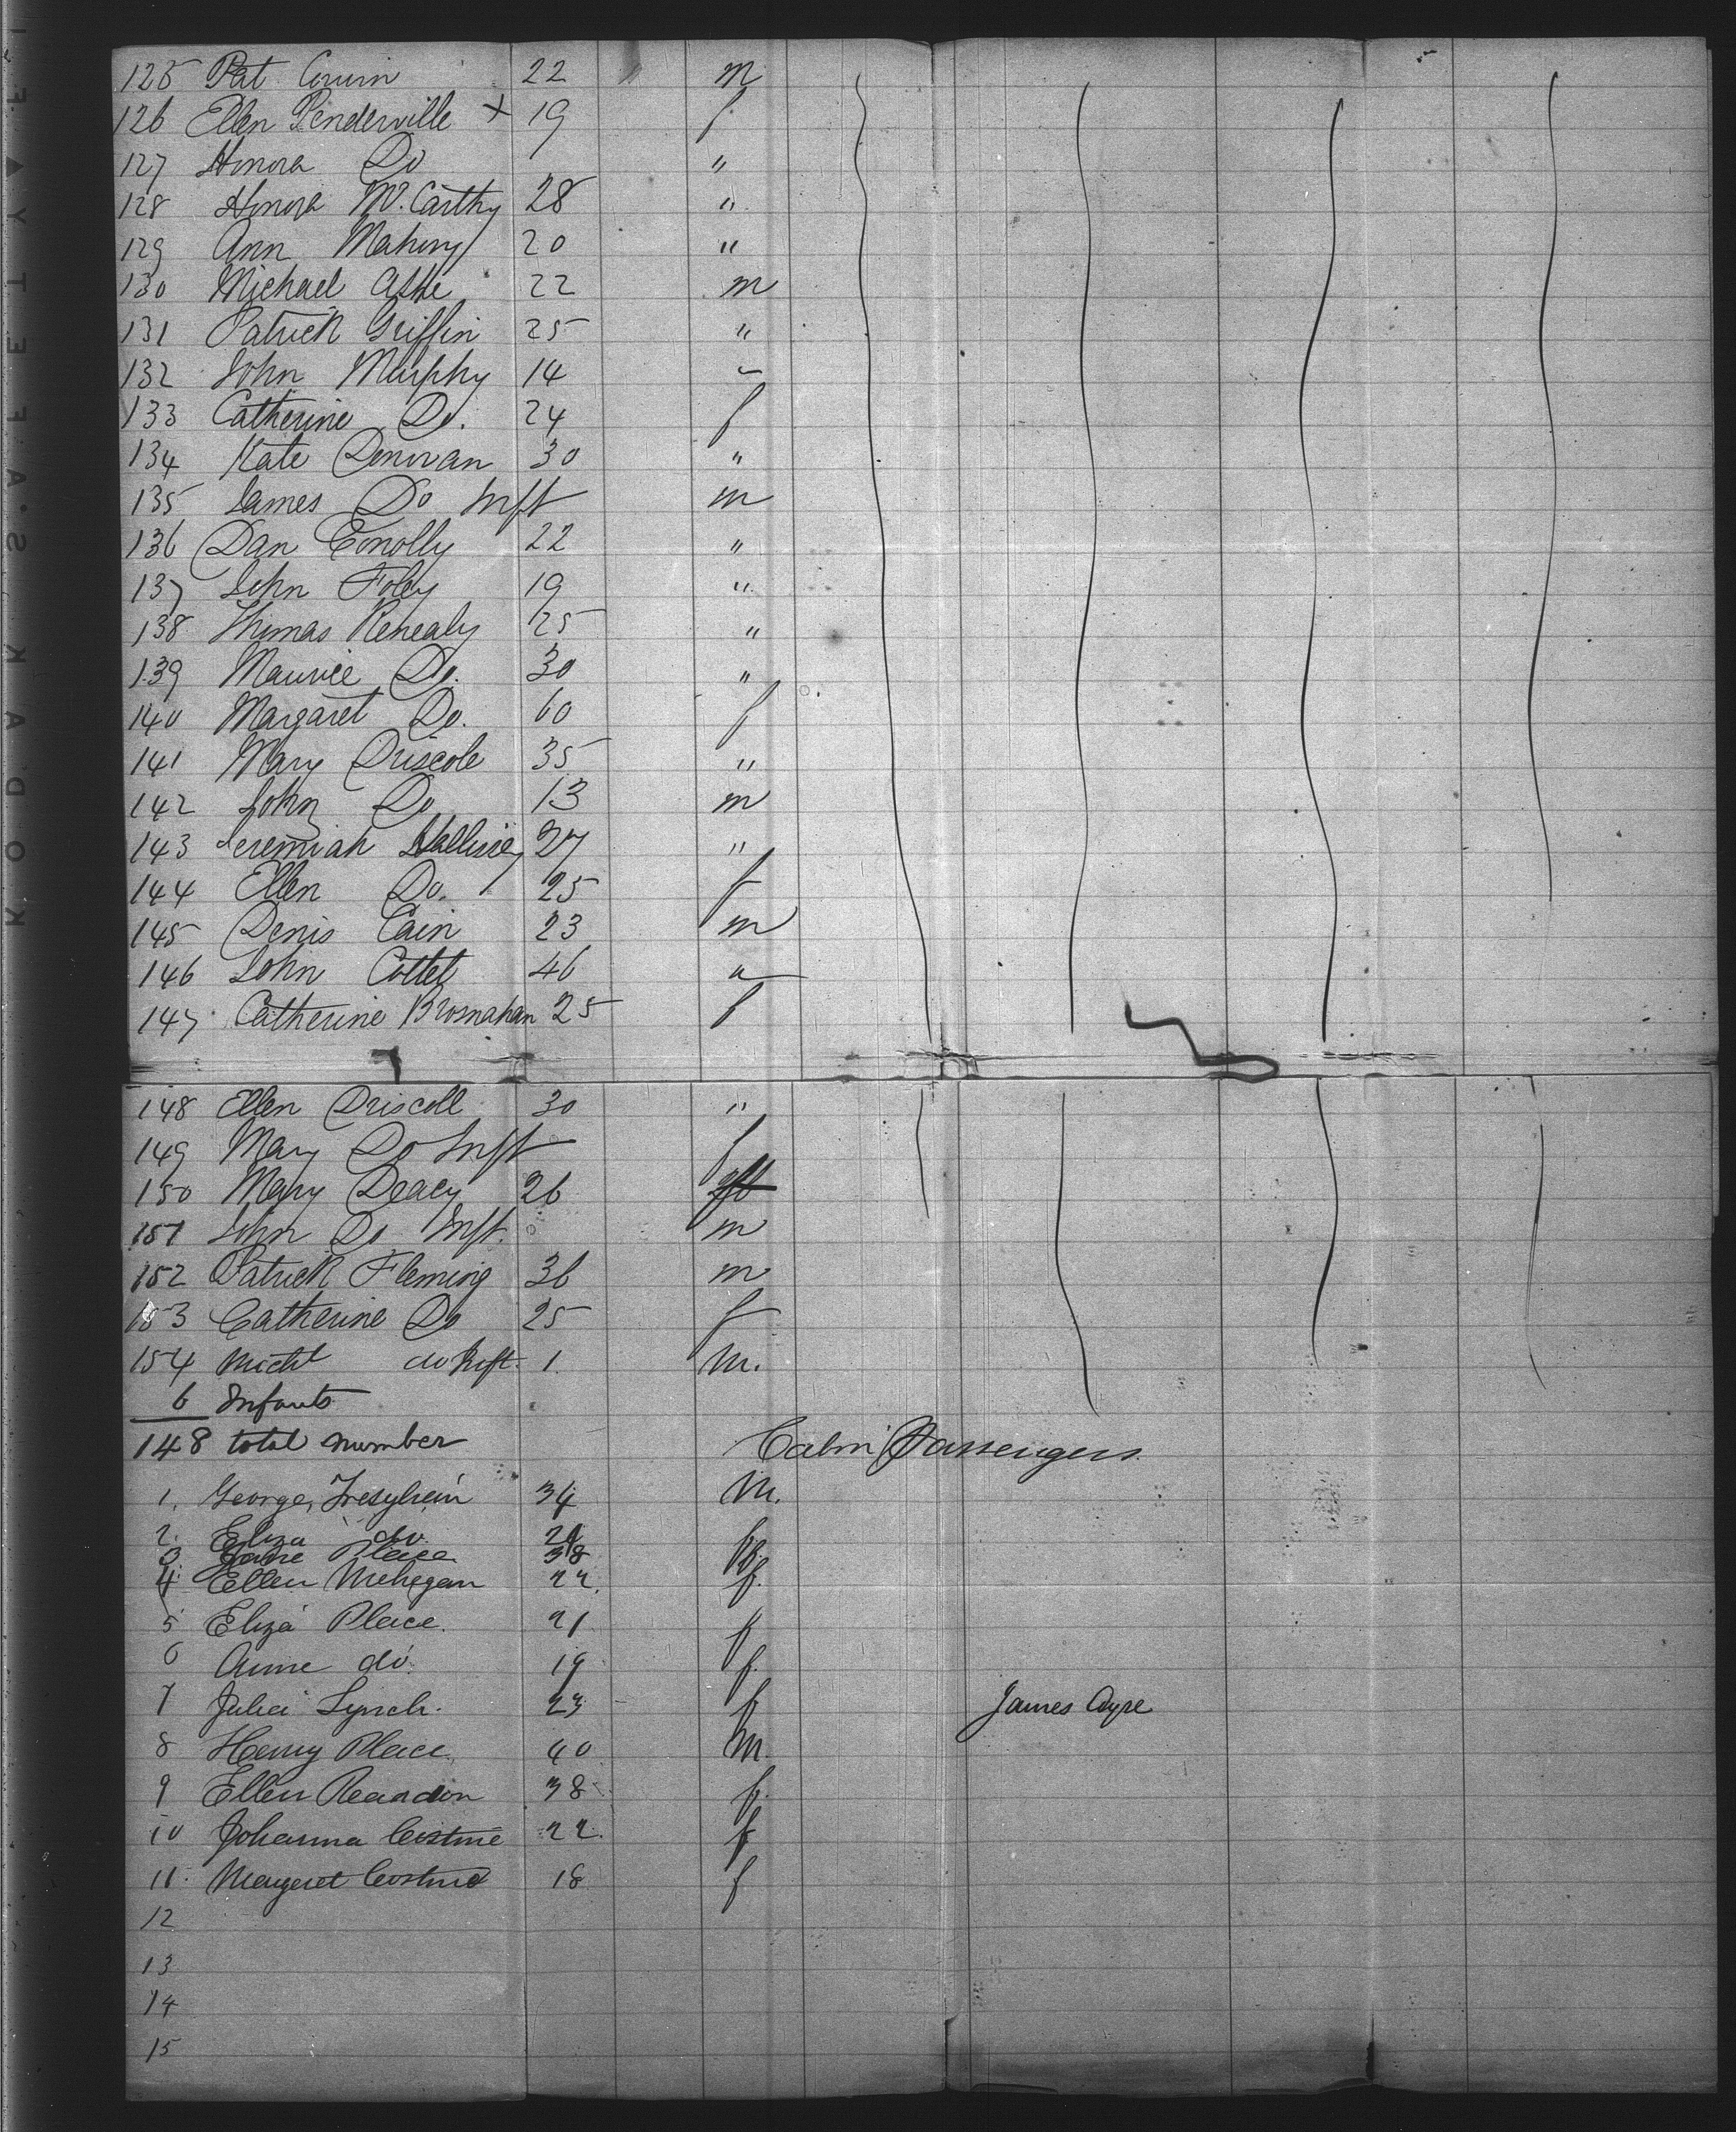 125 Pat 22 m
126 Ellen Penderville x 19 f
127 Honora Do "
128 Honora McCarthy 28 "
129 Ann Mahony 20 "
130 Michael Ashe 22 m
131 Patrick Griffin 25 "
132 John Murphy 14 "
133 Catherine Do. 24 f
134 Kate Donovan 30 "
135 James Do Inft m
136 Dan Conolly 22 "
137 John Foley 19 "
138 Thomas Kenealy 25 "
139 Maurice Do. 30 "
140 Margaret Do. 60 f
141 Mary Driscole 35 "
142 John Do 13 m
143 Jeremiah Hallissey 27 "
144 Ellen Do. 25 f
145 Denis Cain 23 m
146 John Cottet 46 "
147 Catherine Brosnahan 25 f
148 Ellen Driscoll 30 "
149 Mary Do Inft f
150 Mary Deacy 26
151 John Do Inft. m
152 Patrick Fleming 36 m
153 Catherine Do 25 f
154 Michl do Inft. 1. m.
6 Infants
148 total number
Cabin Passengers
1. George 34 M.
2. Eliza do. f
3 Place 38 f
4. Ellen Mehegan 22. f.
5 Eliza Place. 21 f
6 Anne do. 19 f.
7 Julia Lynch. 23 f
James Ayre
8 Henry Place. 40 M.
9 Ellen Reardon 38 f.
10 Johanna Costine 22. f
11. Margeret Costine 18 f
12
13
14
15
KODAK·SAFETY▲F